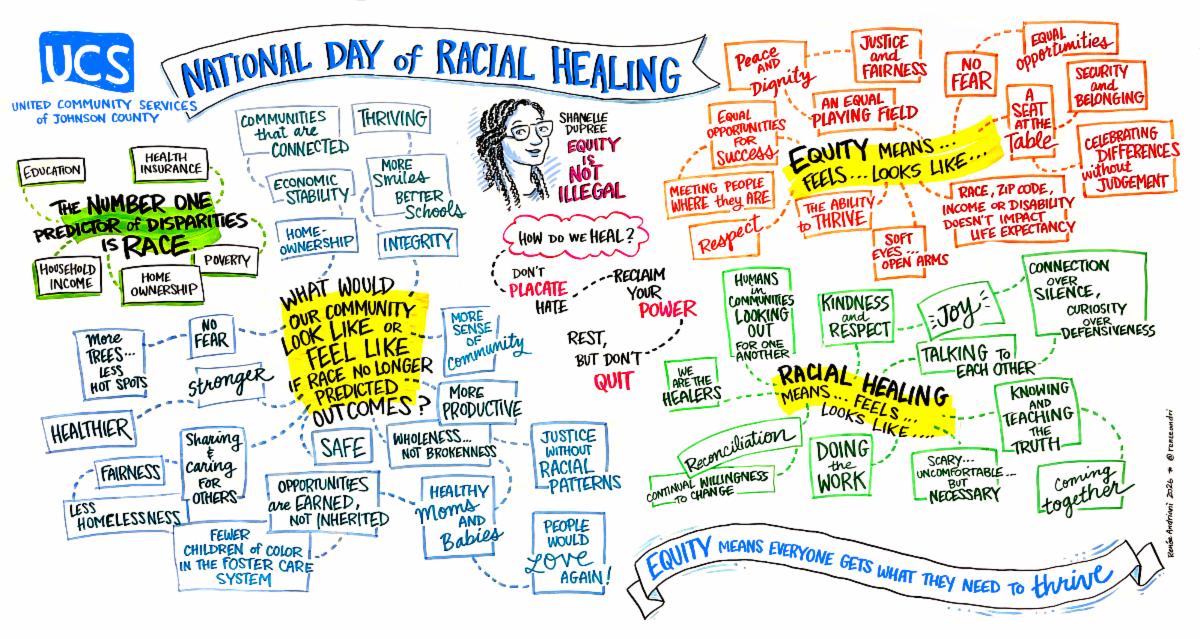 UCS
UNITED COMMUNITY SERVICES
of JOHNSON COUNTY
NATIONAL DAY of RACIAL HEALING
EDUCATION
HEALTH
INSURANCE
THE NUMBER ONE
PREDICTOR of DISPARITIES
IS RACE.
HOUSEHOLD
INCOME
HOME
OWNERSHIP
POVERTY
COMMUNITIES
that are
CONNECTED
THRIVING
ECONOMIC
STABILITY
MORE
Smiles
BETTER
Schools
HOME-
OWNERSHIP
INTEGRITY
WHAT WOULD
OUR COMMUNITY
LOOK LIKE OR
FEEL LIKE
IF RACE NO LONGER
PREDICTED
OUTCOMES?
More
TREES...
LESS
HOT SPOTS
NO
FEAR
stronger
HEALTHIER
FAIRNESS
LESS
HOMELESSNESS
Sharing
&
Caring
FOR
OTHERS
FEWER
CHILDREN of COLOR
IN THE FOSTER CARE
SYSTEM
SAFE
OPPORTUNITIES
are EARNED,
NOT INHERITED
MORE
SENSE
OF
Community
MORE
PRODUCTIVE
WHOLENESS...
NOT BROKENNESS
HEALTHY
Moms
AND
Babies
JUSTICE
WITHOUT
RACIAL
PATTERNS
PEOPLE
WOULD
Love
AGAIN!
SHANELLE
DUPREE
EQUITY
IS
NOT
ILLEGAL
HOW DO WE HEAL?
DON'T
PLACATE
HATE
RECLAIM
YOUR
POWER
REST,
BUT DON'T
QUIT
Peace
AND
Dignity
JUSTICE
and
FAIRNESS
NO
FEAR
EQUAL
opportunities
SECURITY
and
BELONGING
AN EQUAL
PLAYING FIELD
A
SEAT
AT THE
Table
EQUAL
OPPORTUNITIES
FOR
Success
EQUITY MEANS...
FEELS... LOOKS LIKE...
CELEBRATING
DIFFERENCES
without
JUDGEMENT
MEETING PEOPLE
WHERE they ARE
THE ABILITY
to THRIVE
RACE, ZIP CODE,
INCOME OR DISABILITY
DOESN'T IMPACT
LIFE EXPECTANCY
Respect
SOFT
EYES...
OPEN ARMS
HUMANS
in
COMMUNITIES
LOOKING
OUT
FOR ONE
ANOTHER
KINDNESS
and
RESPECT
JOY
CONNECTION
OVER
SILENCE,
CURIOSITY
OVER
DEFENSIVENESS
TALKING TO
EACH OTHER
WE
ARE THE
HEALERS
RACIAL HEALING
MEANS... FEELS...
LOOKS LIKE....
KNOWING
AND
TEACHING
THE
TRUTH
Reconciliation
CONTINUAL WILLINGNESS
TO CHANGE
DOING
the
WORK
SCARY...
UNCOMFORTABLE...
BUT
NECESSARY
Coming
together
EQUITY MEANS EVERYONE GETS WHAT THEY NEED TO thrive
Renée Andriani 2026 * @reneeandri